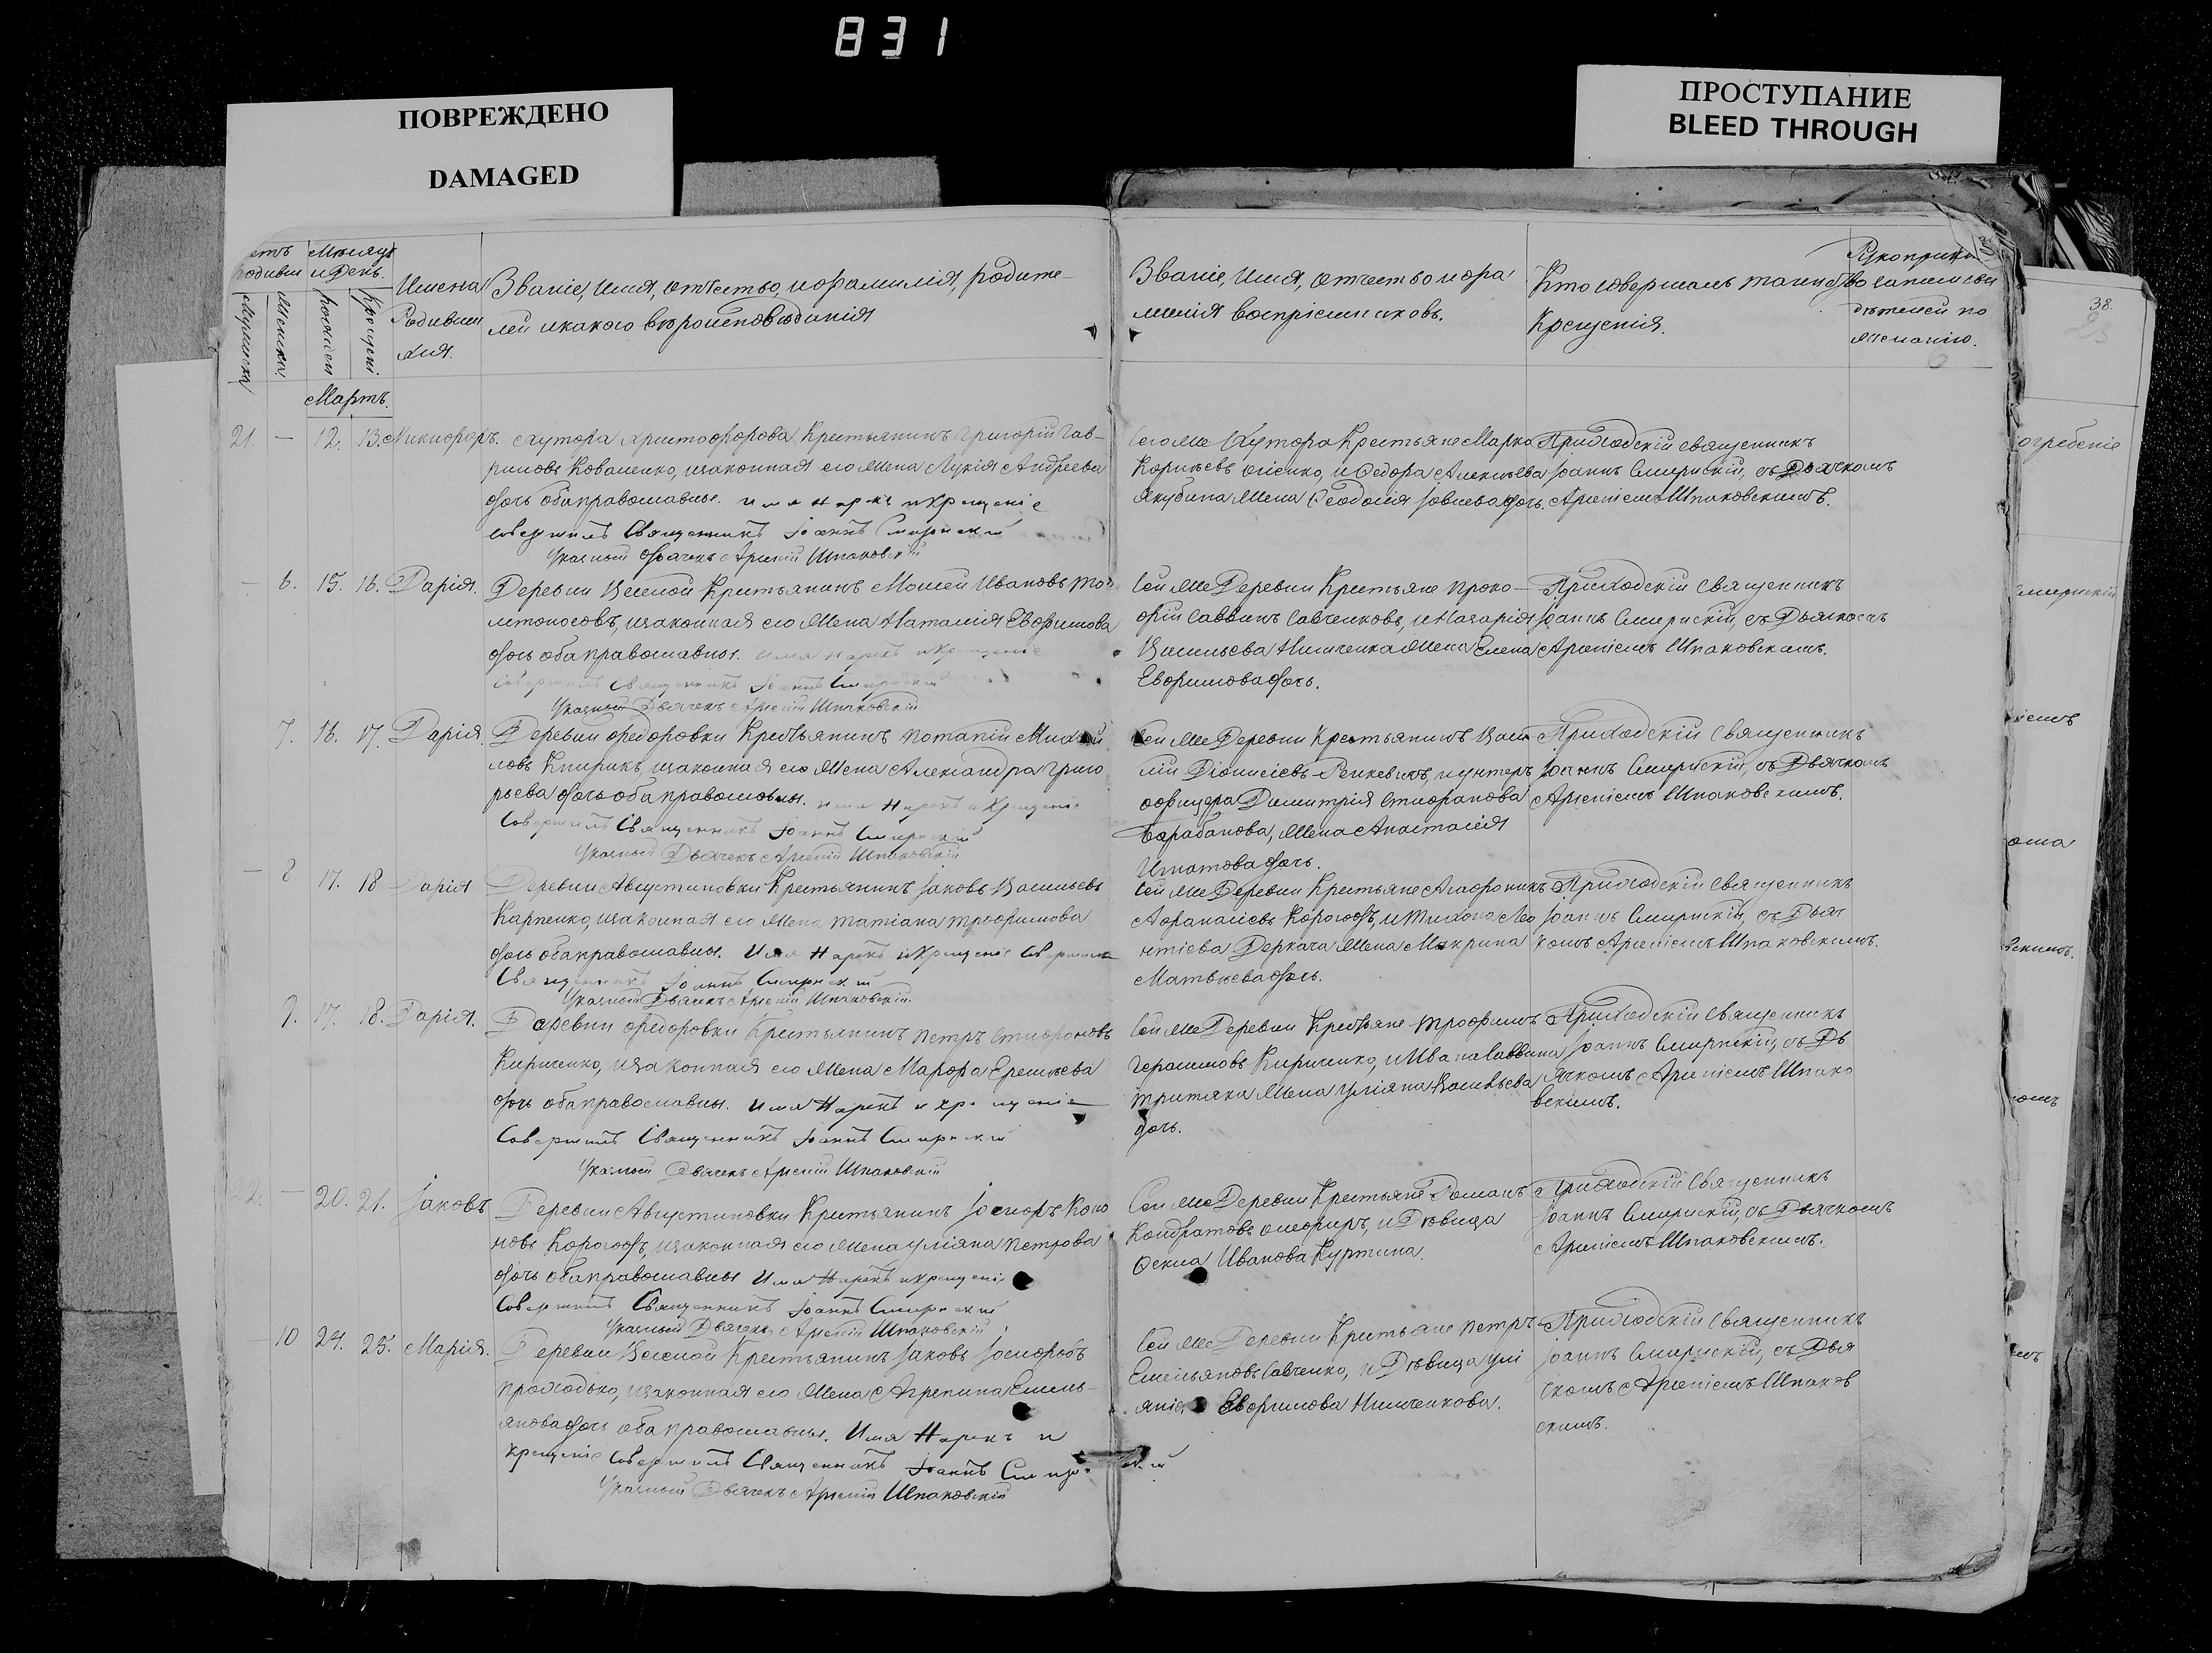 831
ПОВРЕЖДЕНО
DAMAGED
ПРОСТУПАНИЕ
BLEED THROUGH
етъ родивши
Мѣсяцъ и День.
Мужеска
Женска
рожден
Крещені
Имена Родивши хся.
Званіе, Имя, отчество, и фамилія, родите-
лей и какого вѣроисповѣданія
Званіе, Имя, отчество и фа
милія воспріемниковъ.
Кто совершалъ таинство
Крещенія.
Рукоприкл
во записи сви
дѣтелей по
желанію.
38.
23
Мартъ.
21. — 12. 13. Никифоръ. Хутора Христофорова Крестьянинъ Григорій Гав-
риловъ Коваленко, изаконная его Жена Лукія Андреева
дочь оба православны. имя нарекъ и Крещеніе
совершилъ Священникъ Іоаннъ Смирнскій
Указный дьячекъ Арсеній Шпаковскій
Сего же Хутора Крестьяне Марко
Корнѣевъ, и Федора Алексѣева
Якубина Жена Феодосія Іовлева дочь.
Приходскій священникъ
Іоаннъ Смирнскій, съ Дьячкомъ
Арсеніемъ Шпаковскимъ.
— 6. 15. 16. Дарія. Деревни Веселой Крестьянинъ Моисей Ивановъ Тол
мтоносовъ, изаконная его Жена Наталія Евфимова
дочь оба православны. имя нарекъ и Крещеніе
Совершилъ Священникъ Іоаннъ Смирнскій
Указный Дьячекъ Арсеній Шпаковскій
Сей же Деревни Крестьяне Проко-
фій Саввинъ Савченковъ, и Назарія
Васильева Нимченка Жена Елена
Евфимова дочь.
Приходскій Священникъ
Іоаннъ Смирнскій, съ Дьячкомъ
Арсеніемъ Шпаковскимъ.
7. 16. 17. Дарія. Деревни Федоровки Крестьянинъ Потапій Михай
ловъ Книрикъ, изаконная его Жена Александра Григо
рьева дочь оба православны. имя Нарекъ и Крещеніе
Совершилъ Священникъ Іоаннъ Смирнскій
Указный Дьячекъ Арсеній Шпаковскій
Сей же Деревни Крестьянинъ Васи
лій Діонисіевъ Ренкевичъ, и унтеръ
офицера Димитрія Стефанова
Барабанова, Жена Анастасія
Игнатова дочь.
Приходскій Священникъ
Іоаннъ Смирнскій, съ Дьячкомъ
Арсеніемъ Шпаковскимъ.
— 8 17. 18 Дарія Деревни Августиновки Крестьянинъ Іаковъ Васильевъ
Карпенко, изаконная его Жена Татіана Трофимова
дочь оба православны. Имя Нарекъ и Крещеніе Совершилъ
Священникъ Іоаннъ Смирнскій
Указный Дьячекъ Арсеній Шпаковскій.
Сей же Деревни Крестьяне Агафоникъ
Афанасіевъ Корогодъ, и Тихона Лео
нтіева Деркача Жена Макрина
Матвѣева дочь.
Приходскій священникъ
Іоаннъ Смирнскій, съ Дьяч
комъ Арсеніемъ Шпаковскимъ.
9. 17. 18. Дарія. Деревни Федоровки Крестьянинъ Петръ Стефановъ
Кириченко, изаконная его Жена Марфа Еремѣева
дочь оба православны. имя Нарекъ и крещеніе
Совершилъ Священникъ Іоаннъ Смирнскій
Указный Дьячекъ Арсеній Шпаковскій
Сей же Деревни Крестьяне Трофимъ
Герасимовъ Кириченко, и Ивана Саввина
Тритяка Жена Уліяна Васильева
дочь.
Приходскій Священникъ
Іоаннъ Смирнскій, съ Дь
ячкомъ Арсеніемъ Шпако
вскимъ.
22. — 20. 21. Іаковъ Деревни Августиновки Крестьянинъ Іосифъ Коно
новъ Корогодъ, изаконная его Жена Уліяна Петрова
дочь оба православны Имя Нарекъ и Крещеніе
Совершилъ Священникъ Іоаннъ Смирнскій
Указный Дьячекъ Арсеній Шпаковскій
Сей же Деревни Крестьяне Романъ
Кондратовъ, и Дѣвица
Фекла Иванова Куртина.
Приходскій Священникъ
Іоаннъ Смирнскій, съ Дьячкомъ
Арсеніемъ Шпаковскимъ.
— 10 24. 25. Марія. Деревни Веселой Крестьянинъ Іаковъ Іосифовъ
Проходько, изаконная его Жена Агрепина Емель-
янова дочь оба православны. Имя Нарекъ и
Крещеніе Совершилъ Священникъ Іоаннъ Смирнскій
Указный Дьячекъ Арсеній Шпаковскій
Сей же Деревни Крестьяне Петръ
Емельяновъ Савченко, и Дѣвица Улі
янія Евфимова Нимченкова.
Приходскій Священникъ
Іоаннъ Смирнскій, съ Дья
чкомъ Арсеніемъ Шпаков
скимъ.
огребеніе